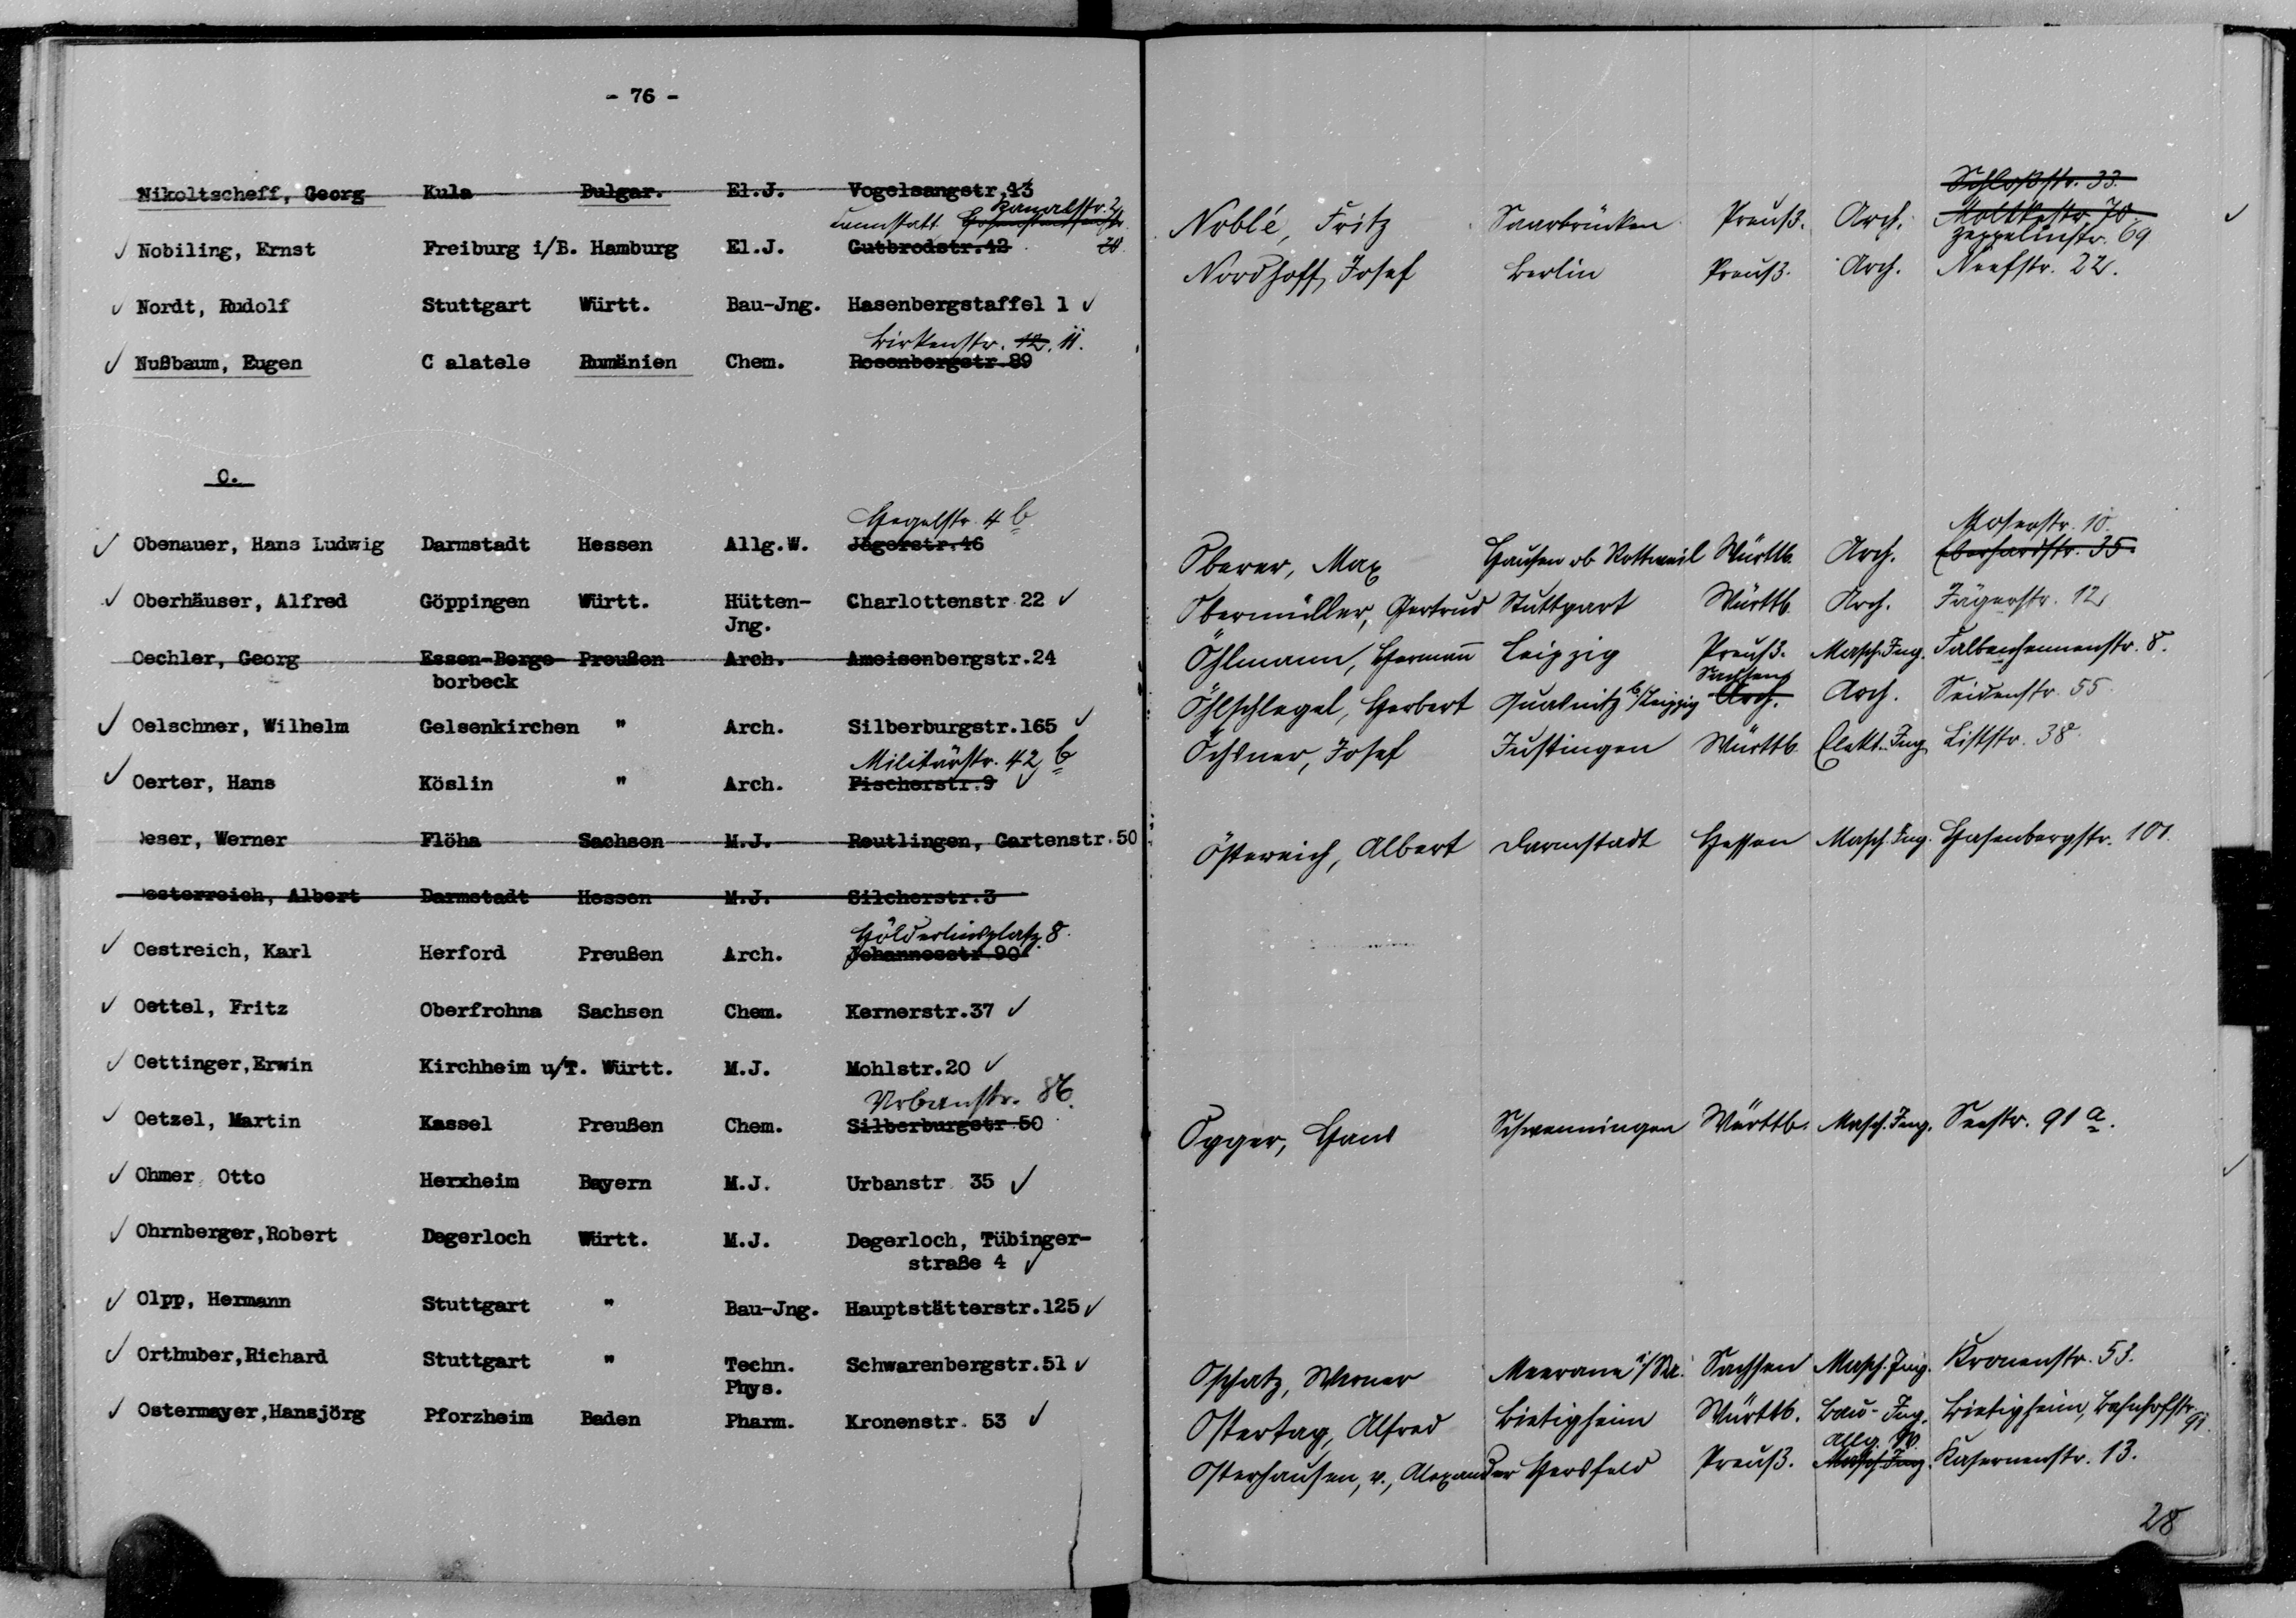 - 76 -
Nikoltscheff, Georg Kula Bulgar. El.J. Vogelsangstr.13
Cannstatt Kanalstr. 2
Nobiling, Ernst Freiburg i/B. Hamburg El.J. Gutbrodstr.12 20.
Nordt, Rudolf Stuttgart Württ. Bau-Jng. Hasenbergstaffel 1 ✓
Birkenstr. 12, 11.
Nußbaum, Eugen C alatele Rumänien Chem. Rosenbergstr.89
O.
Hegelstr. 4 b
Obenauer, Hans Ludwig Darmstadt Hessen Allg.W. Jägerstr.46
Oberhäuser, Alfred Göppingen Württ. Hütten- Charlottenstr.22 ✓
Jng.
Oechler, Georg Essen-Berge- Preußen Arch. Ameisenbergstr.24
borbeck
Oelschner, Wilhelm Gelsenkirchen " Arch. Silberburgstr.165 ✓
Militärstr. 42 b
Oerter, Hans Köslin " Arch. Fischerstr.9 ✓
eser, Werner Flöha Sachsen M.J. Reutlingen, Gartenstr.50
esterreich, Albert Darmstadt Hessen M.J. Silcherstr.3
Hölderlinsplatz 8.
Oestreich, Karl Herford Preußen Arch. Johannesstr.90
Oettel, Fritz Oberfrohna Sachsen Chem. Kernerstr.37 ✓
Oettinger,Erwin Kirchheim u/T. Württ. M.J. Mohlstr.20 ✓
Urbanstr. 86.
Oetzel, Martin Kassel Preußen Chem. Silberburgstr.50
Ohmer, Otto Herxheim Bayern M.J. Urbanstr 35 ✓
Ohrnberger,Robert Degerloch Württ. M.J. Degerloch, Tübinger-
straße 4 ✓
Olpp, Hermann Stuttgart " Bau-Jng. Hauptstätterstr.125 ✓
Orthuber,Richard Stuttgart " Techn. Schwarenbergstr.51 ✓
Phys.
Ostermayer,Hansjörg Pforzheim Baden Pharm. Kronenstr. 53 ✓
Schloßstr. 33.
Noblé, Fritz Saarbrücken Preuß. Arch. Moltkestr. 70.
Zeppelinstr. 69
Nordhoff, Josef Berlin Preuß. Arch. Neefstr. 22.
Moserstr. 10.
Oberer, Max Hausen ob Rottweil Württb. Arch. Eberhardstr. 35.
Obermüller, Gertrud Stuttgart Württb. Arch. Jägerstr. 12
Öhlmann, Hermann Leipzig Preuß. Masch. Ing. Falkenhennenstr. 8.
Sachsen
Öhlschlegel, Herbert b/Leipzig Arch. Arch. Seidenstr. 55.
Öchsner, Josef Justingen Württb. Elekt. Ing. Liststr. 38
Östereich, Albert Darmstadt Hessen Masch. Ing. Hasenbergstr. 101.
Ogger, Hans Schwenningen Württb. Masch. Ing. Seestr. 91 a.
Oschatz, Werner Meerane i/Sa. Sachsen Masch. Ing. Kronenstr. 53.
Ostertag, Alfred Bietigheim Württb. Bau-Ing. Bietigheim, Bahnhofstr. 91
Allg. W.
Osterhausen, v., Alexander Hersfeld Preuß. Masch. Ing. Kasernenstr. 13.
28